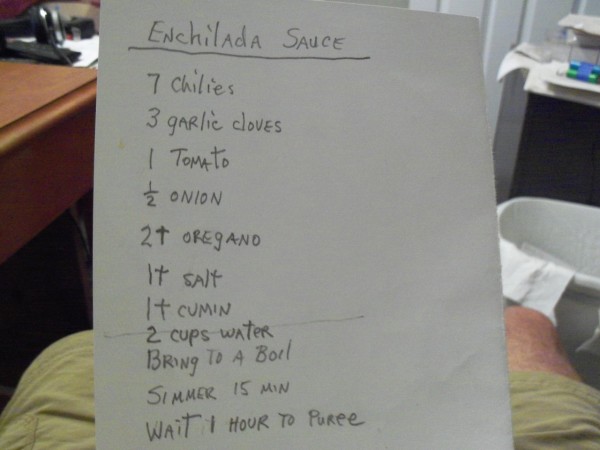 Enchilada Sauce
7 chilies
3 garlic cloves
1 Tomato
½ onion
2t oregano
1t salt
1t cumin
2 cups water
Bring to a Boil
Simmer 15 min
Wait 1 hour to Puree